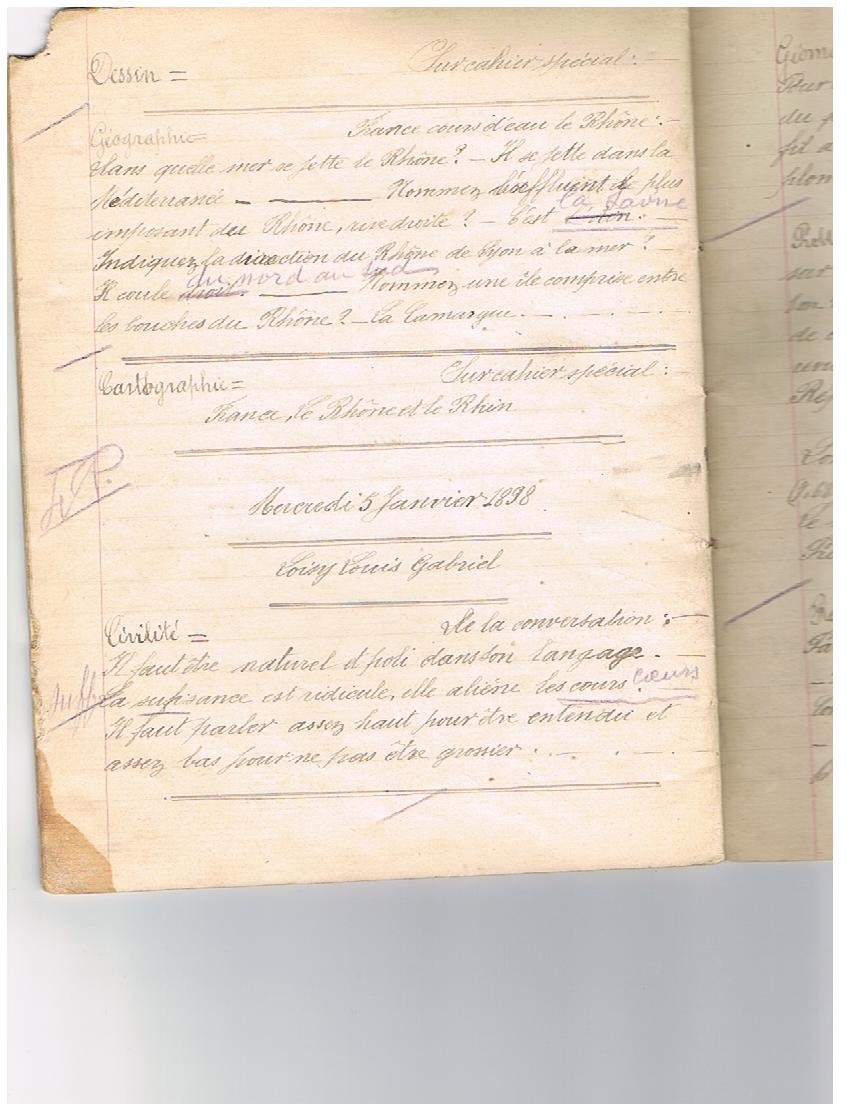 Dessin = Sur cahier spécial :
Géographie France cours d'eau le Rhône :
dans quelle mer se jette le Rhône ? – Il se jette dans la
Méditerranée – Nommez l'affluent le plus
la Saône
imposant du Rhône, rive droite ? – C'est
Indiquez la direction du Rhône de Lyon à la mer ?
du nord au sud
Il coule droit. Nommez une île comprise entre
les bouches du Rhône ? – La Camargue.
Cartographie = Sur cahier spécial :
France, le Rhône et le Rhin
Mercredi 5 Janvier 1898
Loisy Louis Gabriel
Civilité = De la conversation :
Il faut être naturel et poli dans son langage.
suff La sufisance est ridicule, elle aliène les cours. cœurs
Il faut parler assez haut pour être entendu et
assez bas pour ne pas être grossier.